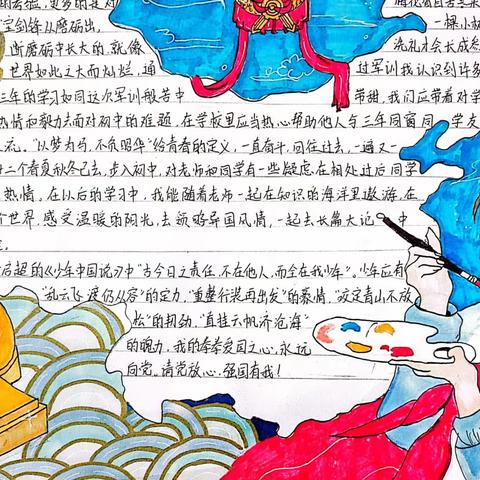 的考验,更多的是对
梅花香自苦寒来
宝剑锋从磨砺出,
一棵小树
断磨砺中长大的,就像
洗礼才会长成参
世界如此之大而灿烂,通
过军训我认识到许多
三年的学习如同这次军训般苦中
带甜,我们应带着对学
热情和毅力去面对初中的难题,在学校里应当热心帮助他人与三年同窗同学友
"以梦为马,不负韶华"给青春的定义,一直奋斗,回往过去,一遍又一
二个春夏秋冬已去,步入初中,对老师和同学有一些疑虑在相处过后同学
热情。在以后的学习中,我能随着老师一起在知识的海洋里遨游,在
世界,感受温暖的阳光,去领略异国风情,一起去长篇大论中
启超的《少年中国说》中"古今日之责任,不在他人,而全在我少年"。少年应有
"乱云飞渡仍从容"的定力,"重整行装再出发"的豪情,"咬定青山不放
松"的韧劲,"直挂云帆济沧海"
的魄力,我的拳拳爱国之心,永远
向党。请党放心,强国有我!